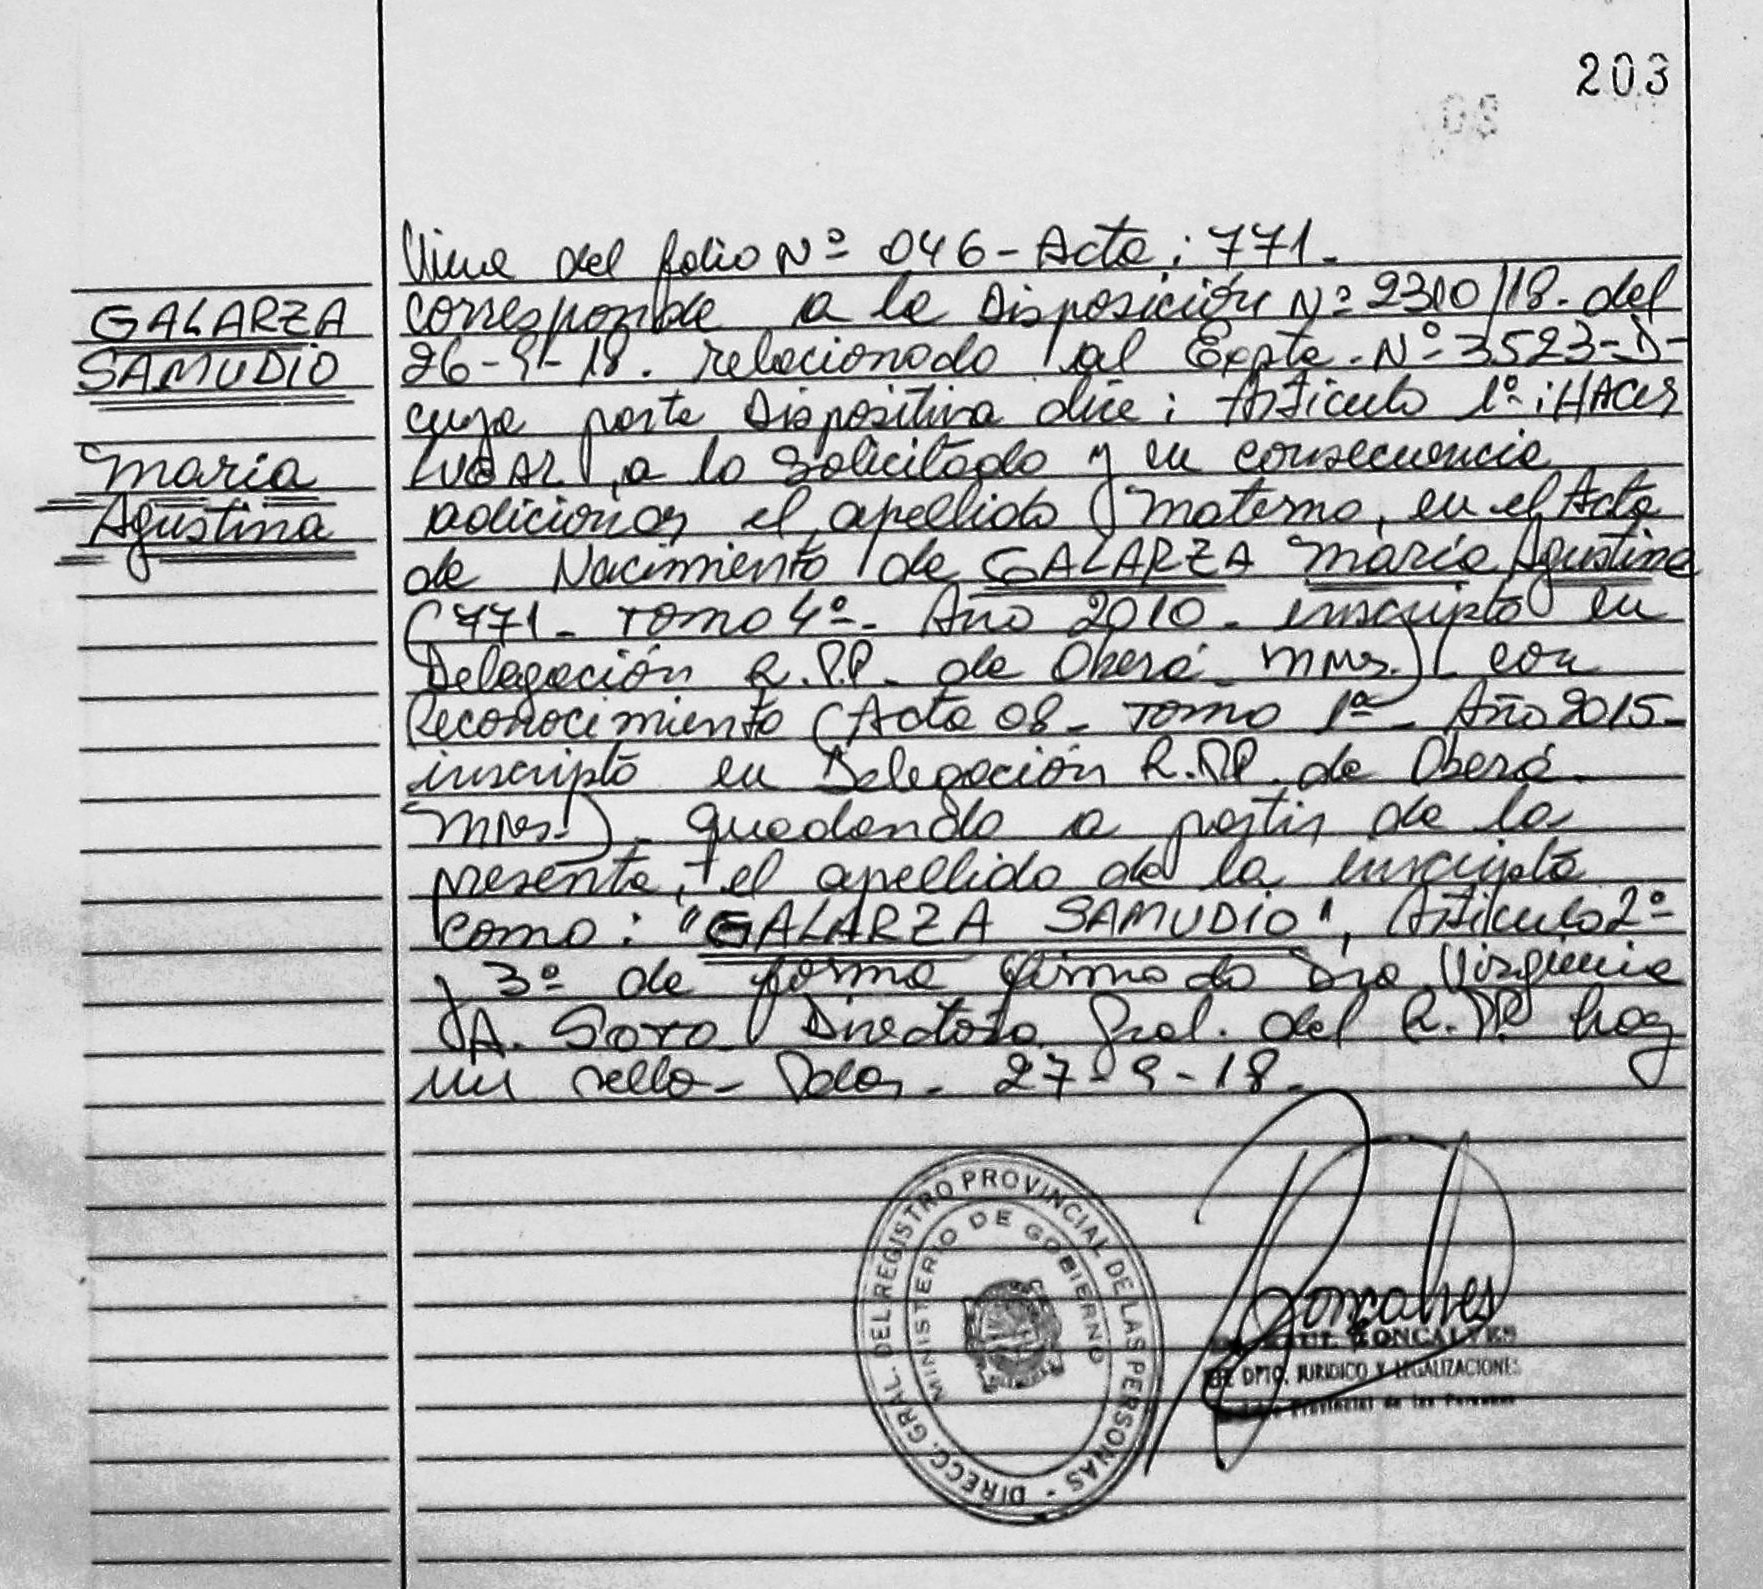 203
GALARZA
SAMUDIO
María
Agustina
Viene del folio Nº 046 - Acta: 771.
corresponde a la Disposición Nº 2310/18. del
26-9-18. relacionado al Expte. Nº 3523-D-
cuya parte Dispositiva dice: Artículo 1º: HACER
LUGAR, a lo solicitado y en consecuencia
adicionar el apellido materno, en el Acta
de Nacimiento de GALARZA María Agustina
(771 - Tomo 4º - Año 2010 - inscripta en
Delegación R.P.P. de Oberá - Mnes.) con
Reconocimiento (Acta 08 - Tomo 1º - Año 2015 -
inscripto en Delegación R.P.P. de Oberá -
Mnes.). quedando a partir de la
presente, el apellido de la inscripta
como: "GALARZA SAMUDIO", Artículo 2º
y 3º de forma firmado Dra Virginia
A. Directora Gral. del R.P.P. hay
un sello - Pdas. 27-9-18.
DIRECC. GRAL. DEL REGISTRO PROVINCIAL DE LAS PERSONAS -
MINISTERIO DE GOBIERNO
Goncalves
GONCALVES
DPTO. JURIDICO Y LEGALIZACIONES
Provincial de las Personas